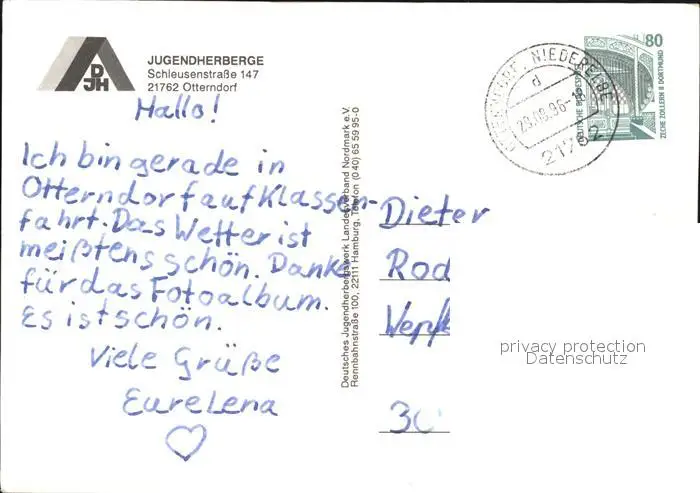 DJH
JUGENDHERBERGE
Schleusenstraße 147
21762 Otterndorf
Hallo!
Ich bin gerade in
Otterndorf auf Klassen-
fahrt. Das Wetter ist
meißtens schön. Danke
für das Fotoalbum.
Es ist schön.
Viele Grüße
Eure Lena
Deutsches Jugendherbergswerk Landesverband Nordmark e.V.
Rennbahnstraße 100, 22111 Hamburg, Telefon (0 40) 65 59 95-0
80
DEUTSCHE BUNDESPOST
ZECHE ZOLLERN II DORTMUND
NIEDERELBE
d
21762
Dieter
Rod
30
privacy protection
Datenschutz